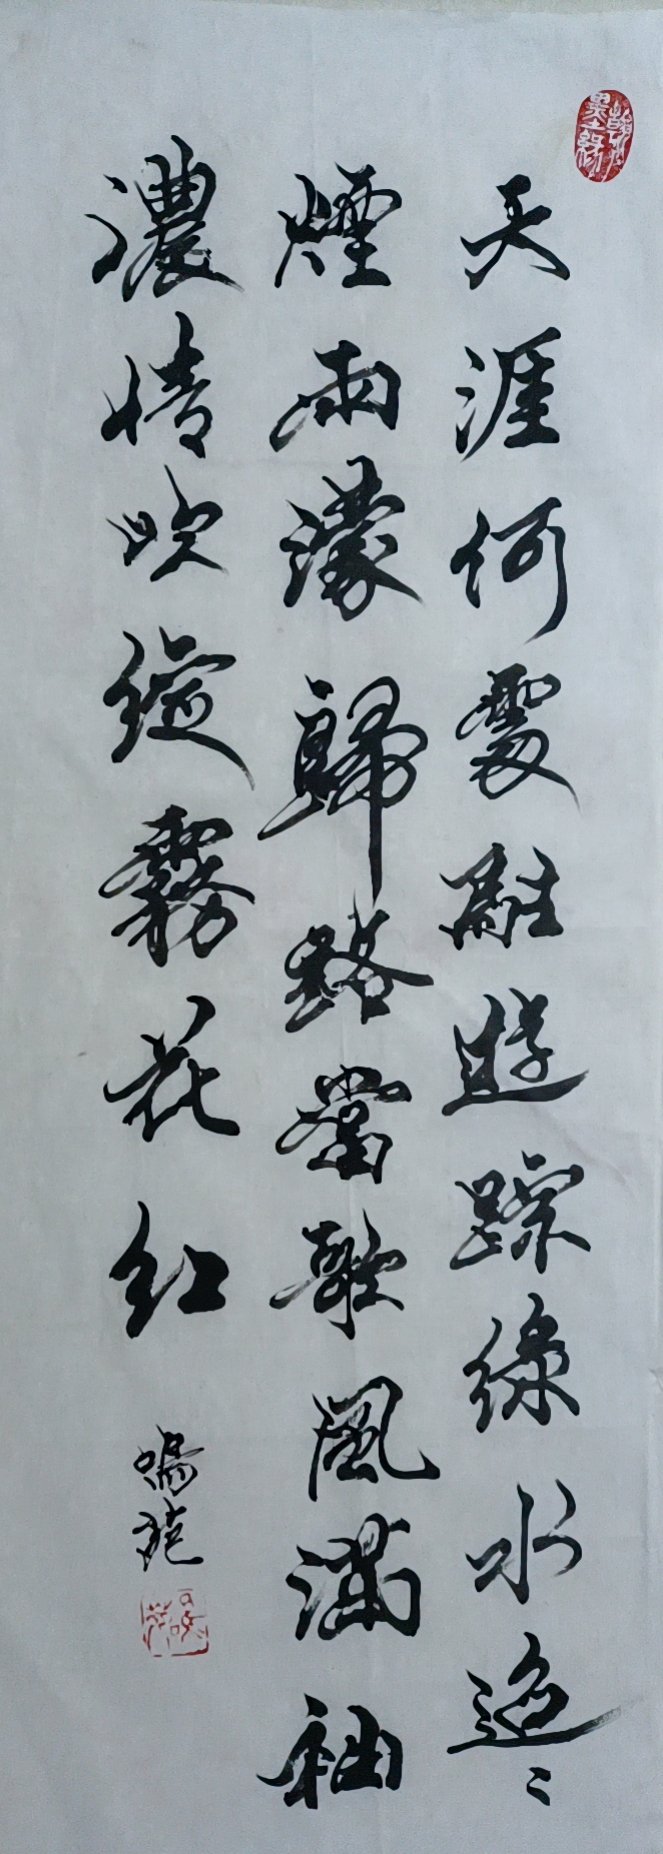 天涯何處駐遊踪綠水迢〻
煙雨濛歸路當歌風滿袖
濃情吹綻霧花紅